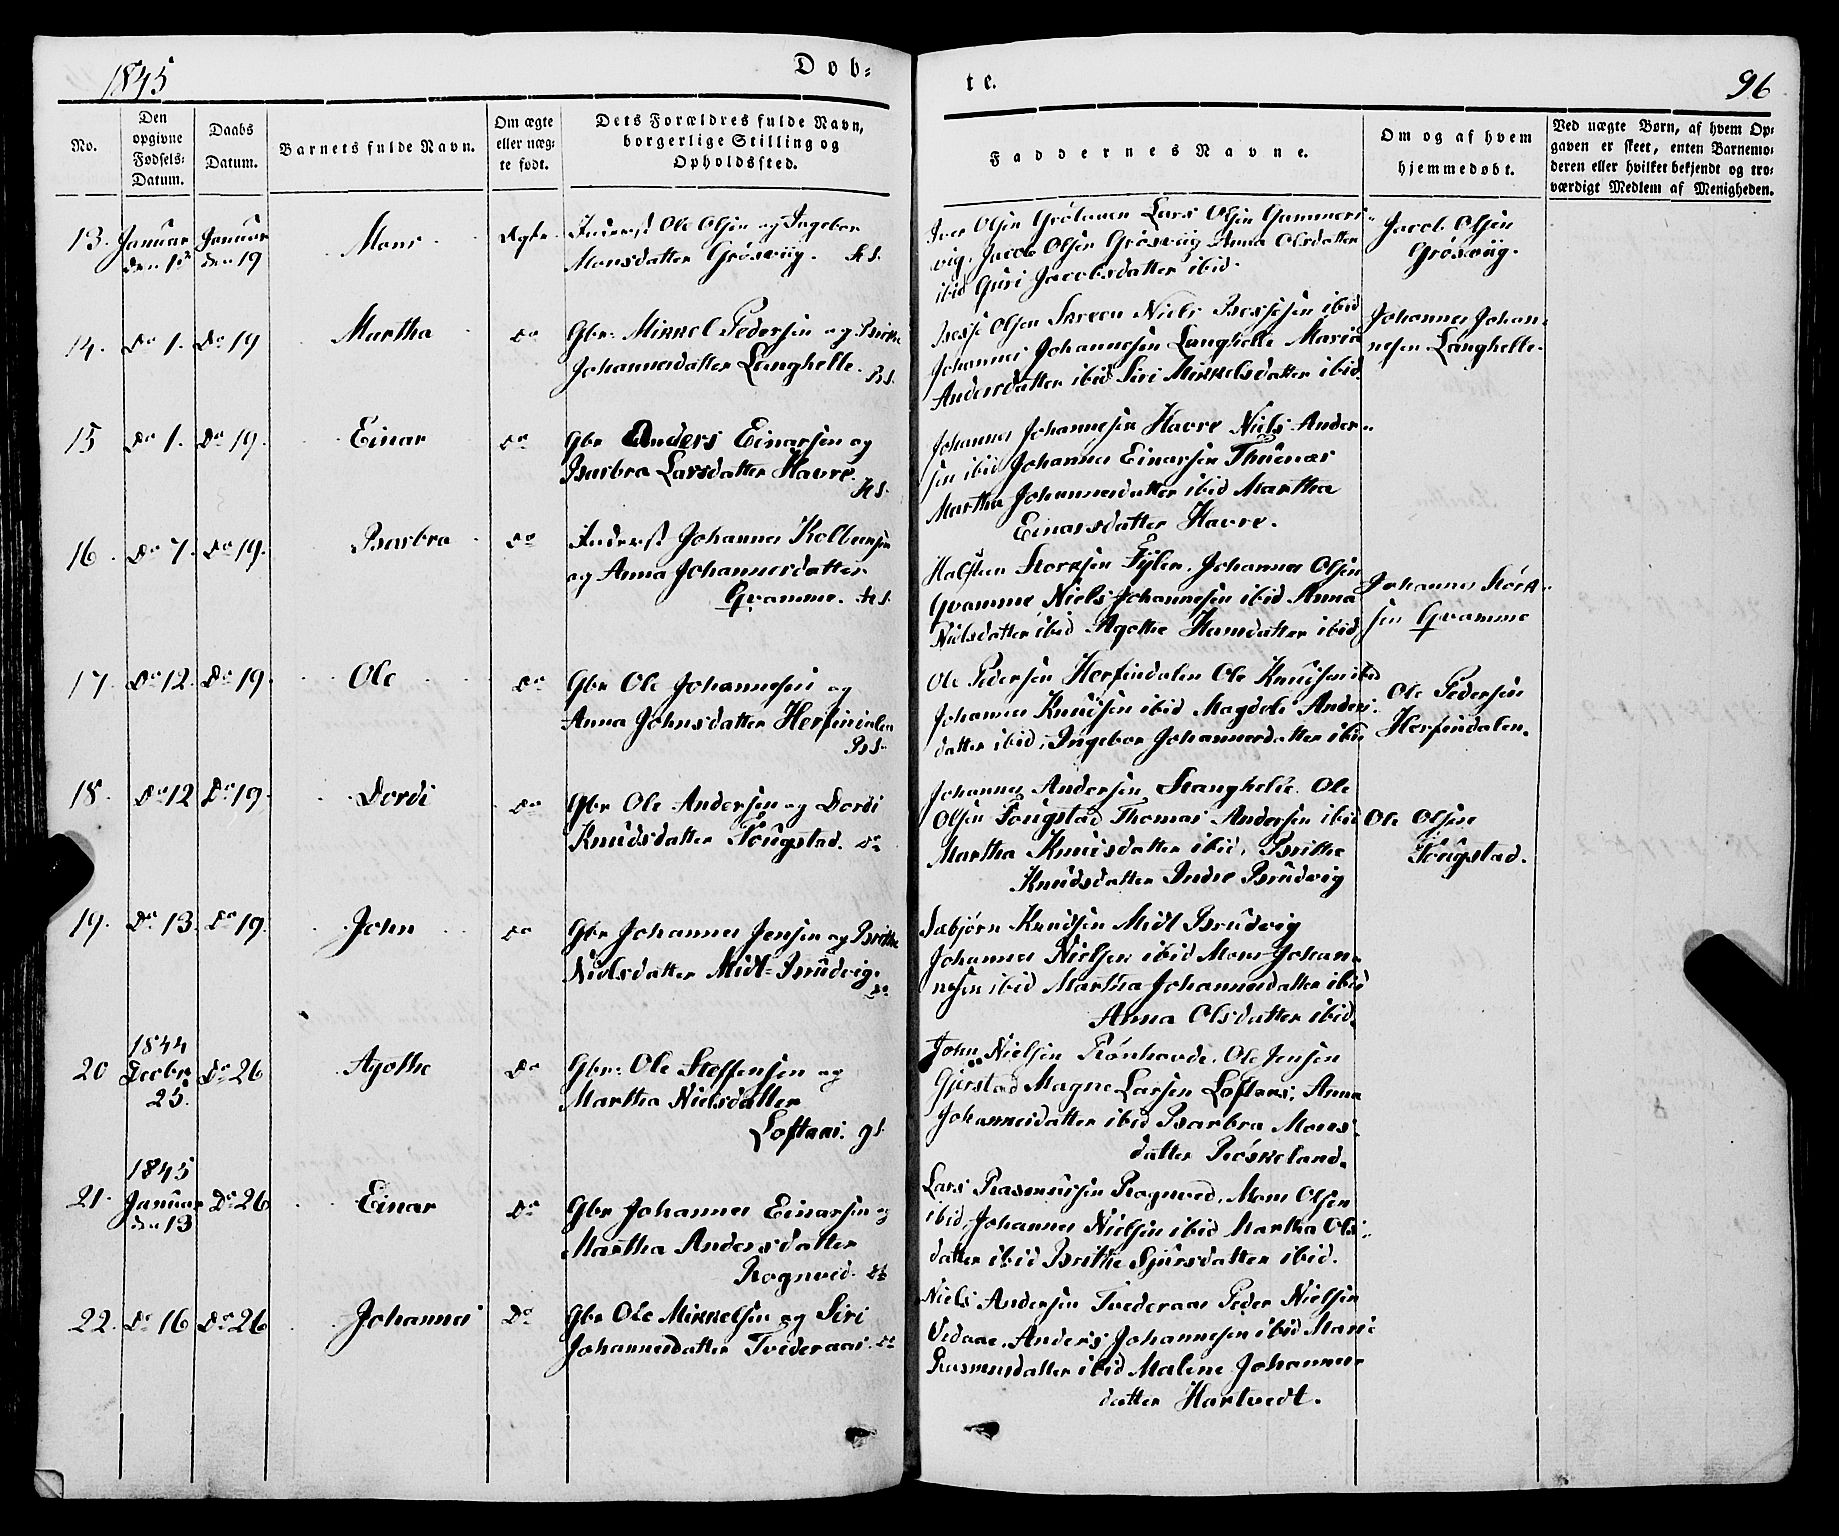 1845
Døb-
te.
96
No.
Den opgivne Fødsels-Datum.
Daabs Datum.
Barnets fulde Navn.
Om ægte eller uæg-te født.
Dets Forældres fulde Navn, borgerlige Stilling og Opholdssted.
Faddernes Navne.
Om og af hvem hjemmedøbt.
Ved uægte Børn, af hvem Op-gaven er skeet, enten Barnemo-deren eller hvilket bekjendt og tro-værdigt Medlem af Menigheden.
13. Januar Januar
den 19
Mons
Inderst Ole Olsen og Ingebor
Monsdatter Grøsviig. H.S.
Iver Olsen Lars Olsen Gammers-
vig, Jacob Olsen Grøsviig Anna Olsdatter
ibid Guri Jacobsdatter ibid.
Jacob Olsen
Grøsviig.
14. Do 1. Do 19
Martha
Do
Gbr: Mikkel Pedersen og Brithe
Johannesdatter Langhelle. B.S.
Olsen Skreen Niels ibid
Johannes Johannesen Langhelle Maria
Andersdatter ibid Siri Mikkelsdatter ibid.
Johannes Johan-
nesen Langhelle.
15 Do 1. Do 19.
Einar
Do
Gbr Anders Einarsen og
Barbra Larsdatter Havre.
H.S.
Johannes Johannesen Havre Niels Ander-
sen ibid Johannes Einarsen Thuenæs
Martha Johannesdatter ibid Martha
Einarsdatter Havre.
16. Do 7. Do 19.
Barbra
Do
Inderst Johannes Kolbensen
og Anna Johannesdatter
Qvamme. H.S.
Halsteen Storksen Fylen, Johannes Olsen
Qvamme, Niels Johannesen ibid Anna
Nielsdatter ibid Agothe Hansdatter ibid
Johannes Størk-
sen Qvamme
17. Do 12. Do 19.
Ole
Do
Gbr Ole Johannesen og
Anna Johnsdatter Herfindalen
B.S.
Ole Pedersen Herfindalen Ole Knudsen ibid
Johannes Knudsen ibid Magdeli Anders-
datter ibid, Ingebor Johannesdatter ibid
Ole Pedersen
Herfindalen.
18. Do 12 Do 19.
Dordi
Do
Gbr Ole Andersen og Dordi
Knudsdatter Tougstad. Do
Johannes Andersen Stanghelle. Ole
Olsen Tougstad Thomas Andersen ibid
Martha Knudsdatter ibid, Brithe
Knudsdatter Indre Brudvig
Ole Olsen
Tougstad.
19. Do 13. Do 19.
John
Do
Gbr Johannes Jensen og Brithe
Nielsdatter Midt-Brudvig.
Do
Sæbjørn Knudsen Midt Brudvig
Johannes Nielsen ibid Mons Johan-
nesen ibid Martha Johannesdatter ibid
Anna Olsdatter ibid.
1844
20 Decbr Do 26
25.
Agothe
Do
Gbr: Ole Steffensen og
Martha Nielsdatter
Loftaas. G.S.
John Nielsen Rønhovde, Ole Jensen
Gjerstad Magne Larsen Loftaas; Anna
Johannesdatter ibid Barbra Mons-
datter Røskeland.
1845
21. Januar Do 26
den 13
Einar
Do
Gbr Johannes Einarsen og
Martha Andersdatter
Rognved. Do
Lars Rasmussen Rognved, Mons Olsen
ibid, Johannes Nielsen ibid Martha Ols-
datter ibid Brithe Sjursdatter ibid.
22. Do 16 Do 26
Johannes
Do
Gbr Ole Mikkelsen og Siri
Johannesdatter Tvederaas. Do
Niels Andersen Tvederaas Peder Nielsen
Vedaae, Anders Johannesen ibid Mari
Rasmusdatter ibid Malene Johannes-
datter Hartvedt.